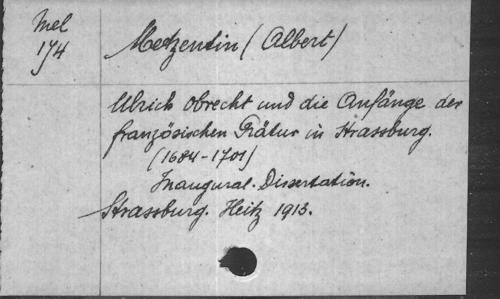 Mel
174
Metzentin (Albert)
Ulrich Obrecht und die Anfänge der
französischen Prätur in Strassburg.
(1684-1701)
Inaugural-Dissertation.
Strassburg. Heitz 1913.